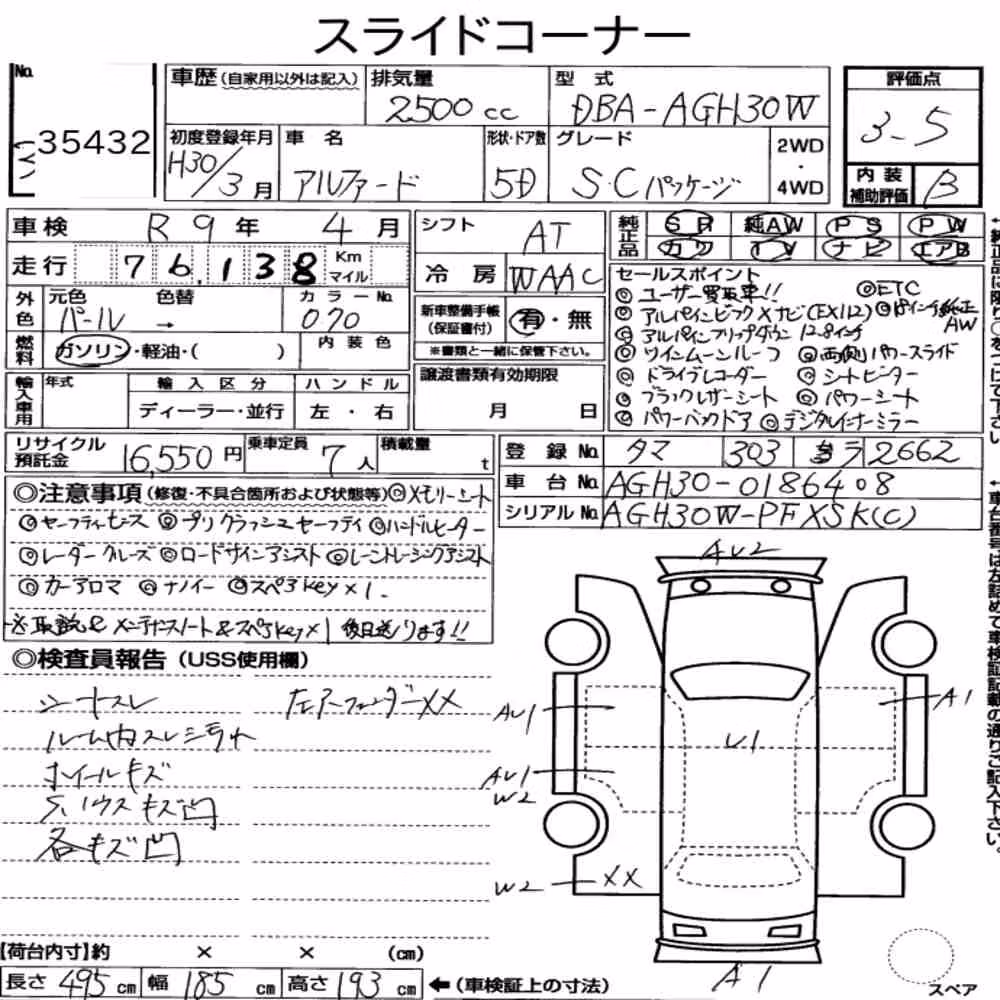 スライドコーナー
No. 35432
車歴(自家用以外は記入) 排気量 2500 cc 型式 DBA-AGH30W 評価点 3.5
初度登録年月 H30/3月 車名 アルファード 形状・ドア数 5D グレード S・Cパッケージ 2WD・4WD 内装補助評価 B
車検 R9年 4月 シフト AT 純正品 SR 純AW PS PW
走行 76,138 Km マイル 冷房 WAAC カワ TV ナビ エアB
外色 元色 パール 色替 → カラーNo. 070 新車整備手帳(保証書付) 有・無
燃料 ガソリン・軽油・( ) 内装色 ※書類と一緒に保管下さい。
輸入車用 年式 輸入区分 ディーラー・並行 ハンドル 左・右 譲渡書類有効期限 月 日
セールスポイント
◎ユーザー買取車!! ◎ETC
◎アルパインビックXナビ(EX112) ◎18インチ純正AW
◎アルパインフリップダウン 12.8インチ
◎ツインムーンルーフ ◎両側パワースライド
◎ドライブレコーダー ◎シートヒーター
◎ブラックレザーシート ◎パワーシート
◎パワーバックドア ◎デジタルインナーミラー
リサイクル預託金 16,550円 乗車定員 7人 積載量 t
登録No. タマ 303 ラ 2662
車台No. AGH30-0186408
シリアルNo. AGH30W-PFXSK(C)
◎注意事項(修復・不具合箇所および状態等)◎メモリーシート
◎セーフティセンス ◎プリクラッシュセーフティ ◎ハンドルヒーター
◎レーダークルーズ ◎ロードサインアシスト ◎レーントレーシングアシスト
◎カーアロマ ◎ナノイー ◎スペアkey×1.
※取説&メンテナンスノート&スペアkey×1後日送ります!!
◎検査員報告(USS使用欄)
シートスレ 左リアフェンダーXX
ルーム内スレシミヨゴレ
ホイールキズ
キズ凹
各キズ凹
AU2
AU1
A1
U1
AU1
W2
W2 XX
A1
スペア
【荷台内寸】約 × × (cm)
長さ 495 cm 幅 185 cm 高さ 193 cm ←(車検証上の寸法)
←車台番号は左詰めで車検証記載の通りご記入下さい。